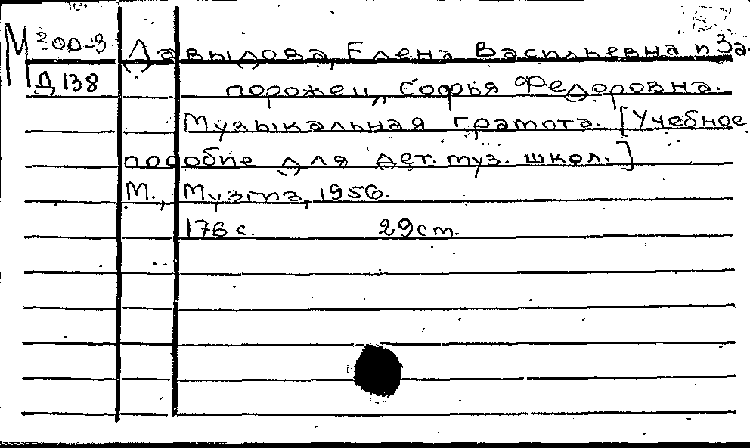 М 200-3 Давыдова, Елена Васильевна и За-
Д 138 порожец, Софья Федоровна.
Музыкальная грамота. [Учебное
пособие для дет. муз. школ.]
М., Музгиз, 1956.
176 с. 29 см.